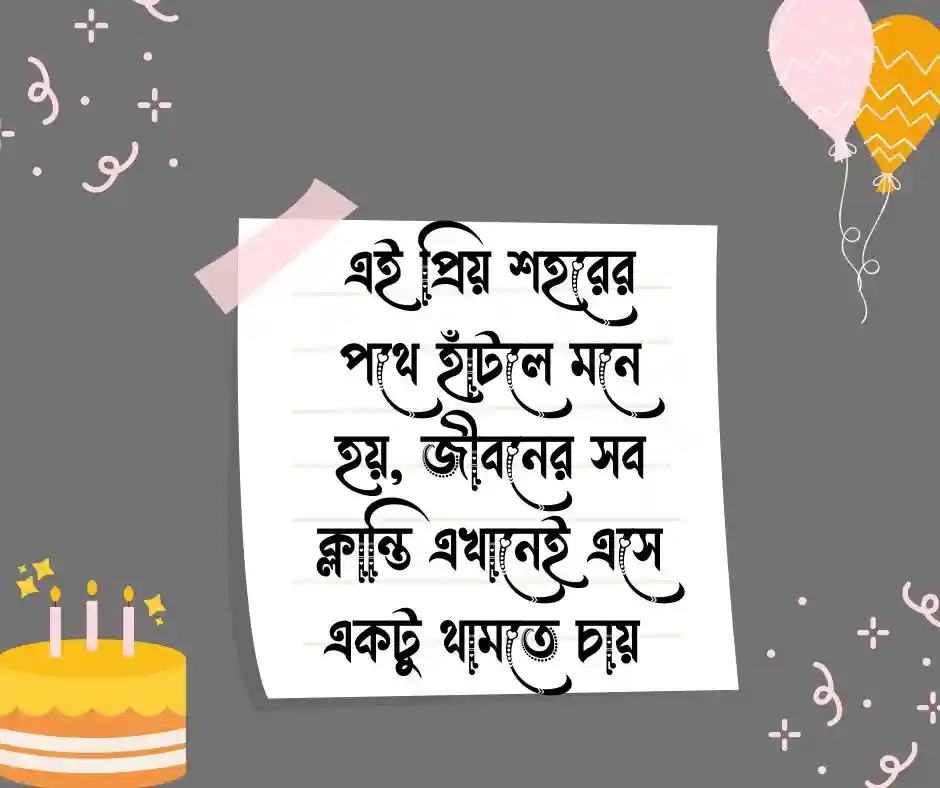 এই প্রিয় শহরের
পথে হাঁটলে মনে
হয়, জীবনের সব
ক্লান্তি এখানেই এসে
একটু থামতে চায়